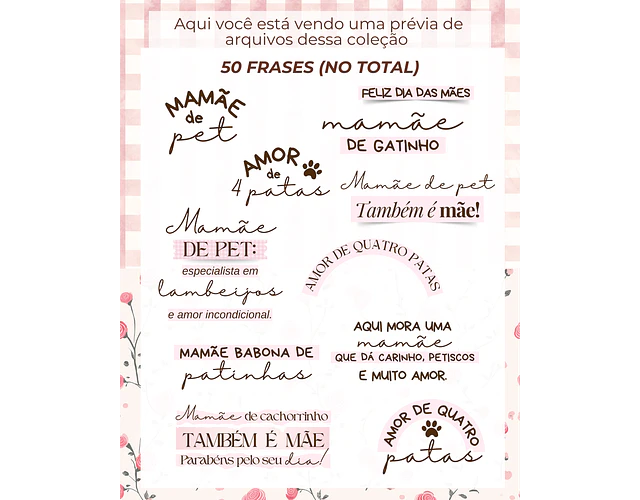 Aqui você está vendo uma prévia de
arquivos dessa coleção
50 FRASES (NO TOTAL)
MAMÃE
de
pet
FELIZ DIA DAS MÃES
mamãe
DE GATINHO
AMOR
de
4 patas
Mamãe de pet
Também é mãe!
Mamãe
DE PET:
especialista em
lambeijos
e amor incondicional.
AMOR DE QUATRO PATAS
AQUI MORA UMA
mamãe
QUE DÁ CARINHO, PETISCOS
E MUITO AMOR.
MAMÃE BABONA DE
patinhas
Mamãe de cachorrinho
TAMBÉM É MÃE
Parabéns pelo seu dia!
AMOR DE QUATRO
patas